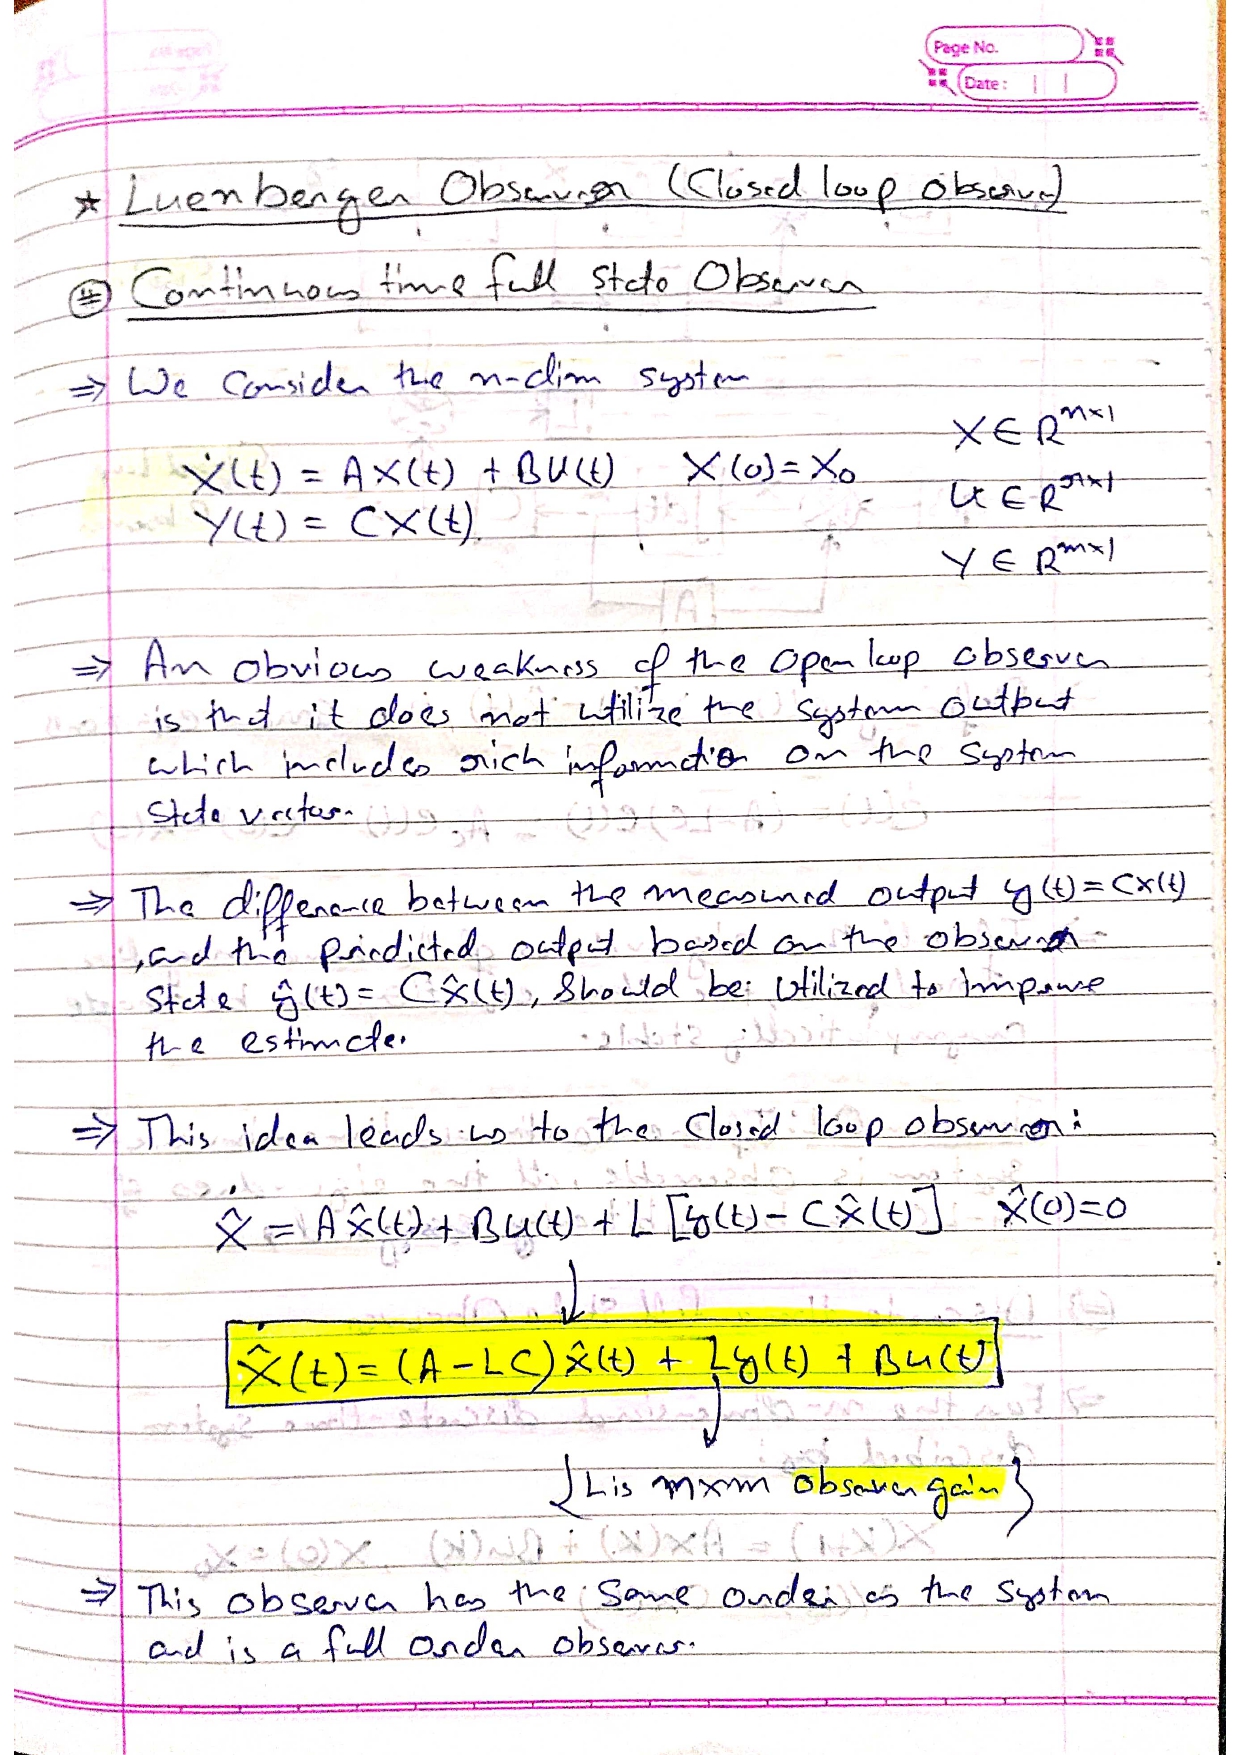 Page No.
Date :
★ Luenberger Observer (Closed loop observer)
# Continuous time full state Observer
⇒ We Consider the n-dim system
X ∈ R^{n×1}
Ẋ(t) = AX(t) + BU(t) X(0) = X₀
U ∈ R^{r×1}
Y(t) = CX(t).
Y ∈ R^{m×1}
⇒ An obvious weakness of the open loop observer
is that it does not utilize the system output
which includes rich information on the system
state vector.
⇒ The difference between the measured output y(t) = Cx(t)
, and the predicted output based on the observer
state ŷ(t) = Cx̂(t), should be utilized to improve
the estimate.
⇒ This idea leads us to the closed loop observer:
x̂̇ = Ax̂(t) + Bu(t) + L [y(t) - Cx̂(t)] x̂(0)=0
↓
x̂̇(t) = (A - LC) x̂(t) + Ly(t) + Bu(t)
↓
{L is n×m observer gain}
⇒ This observer has the same order as the system
and is a full order observer.